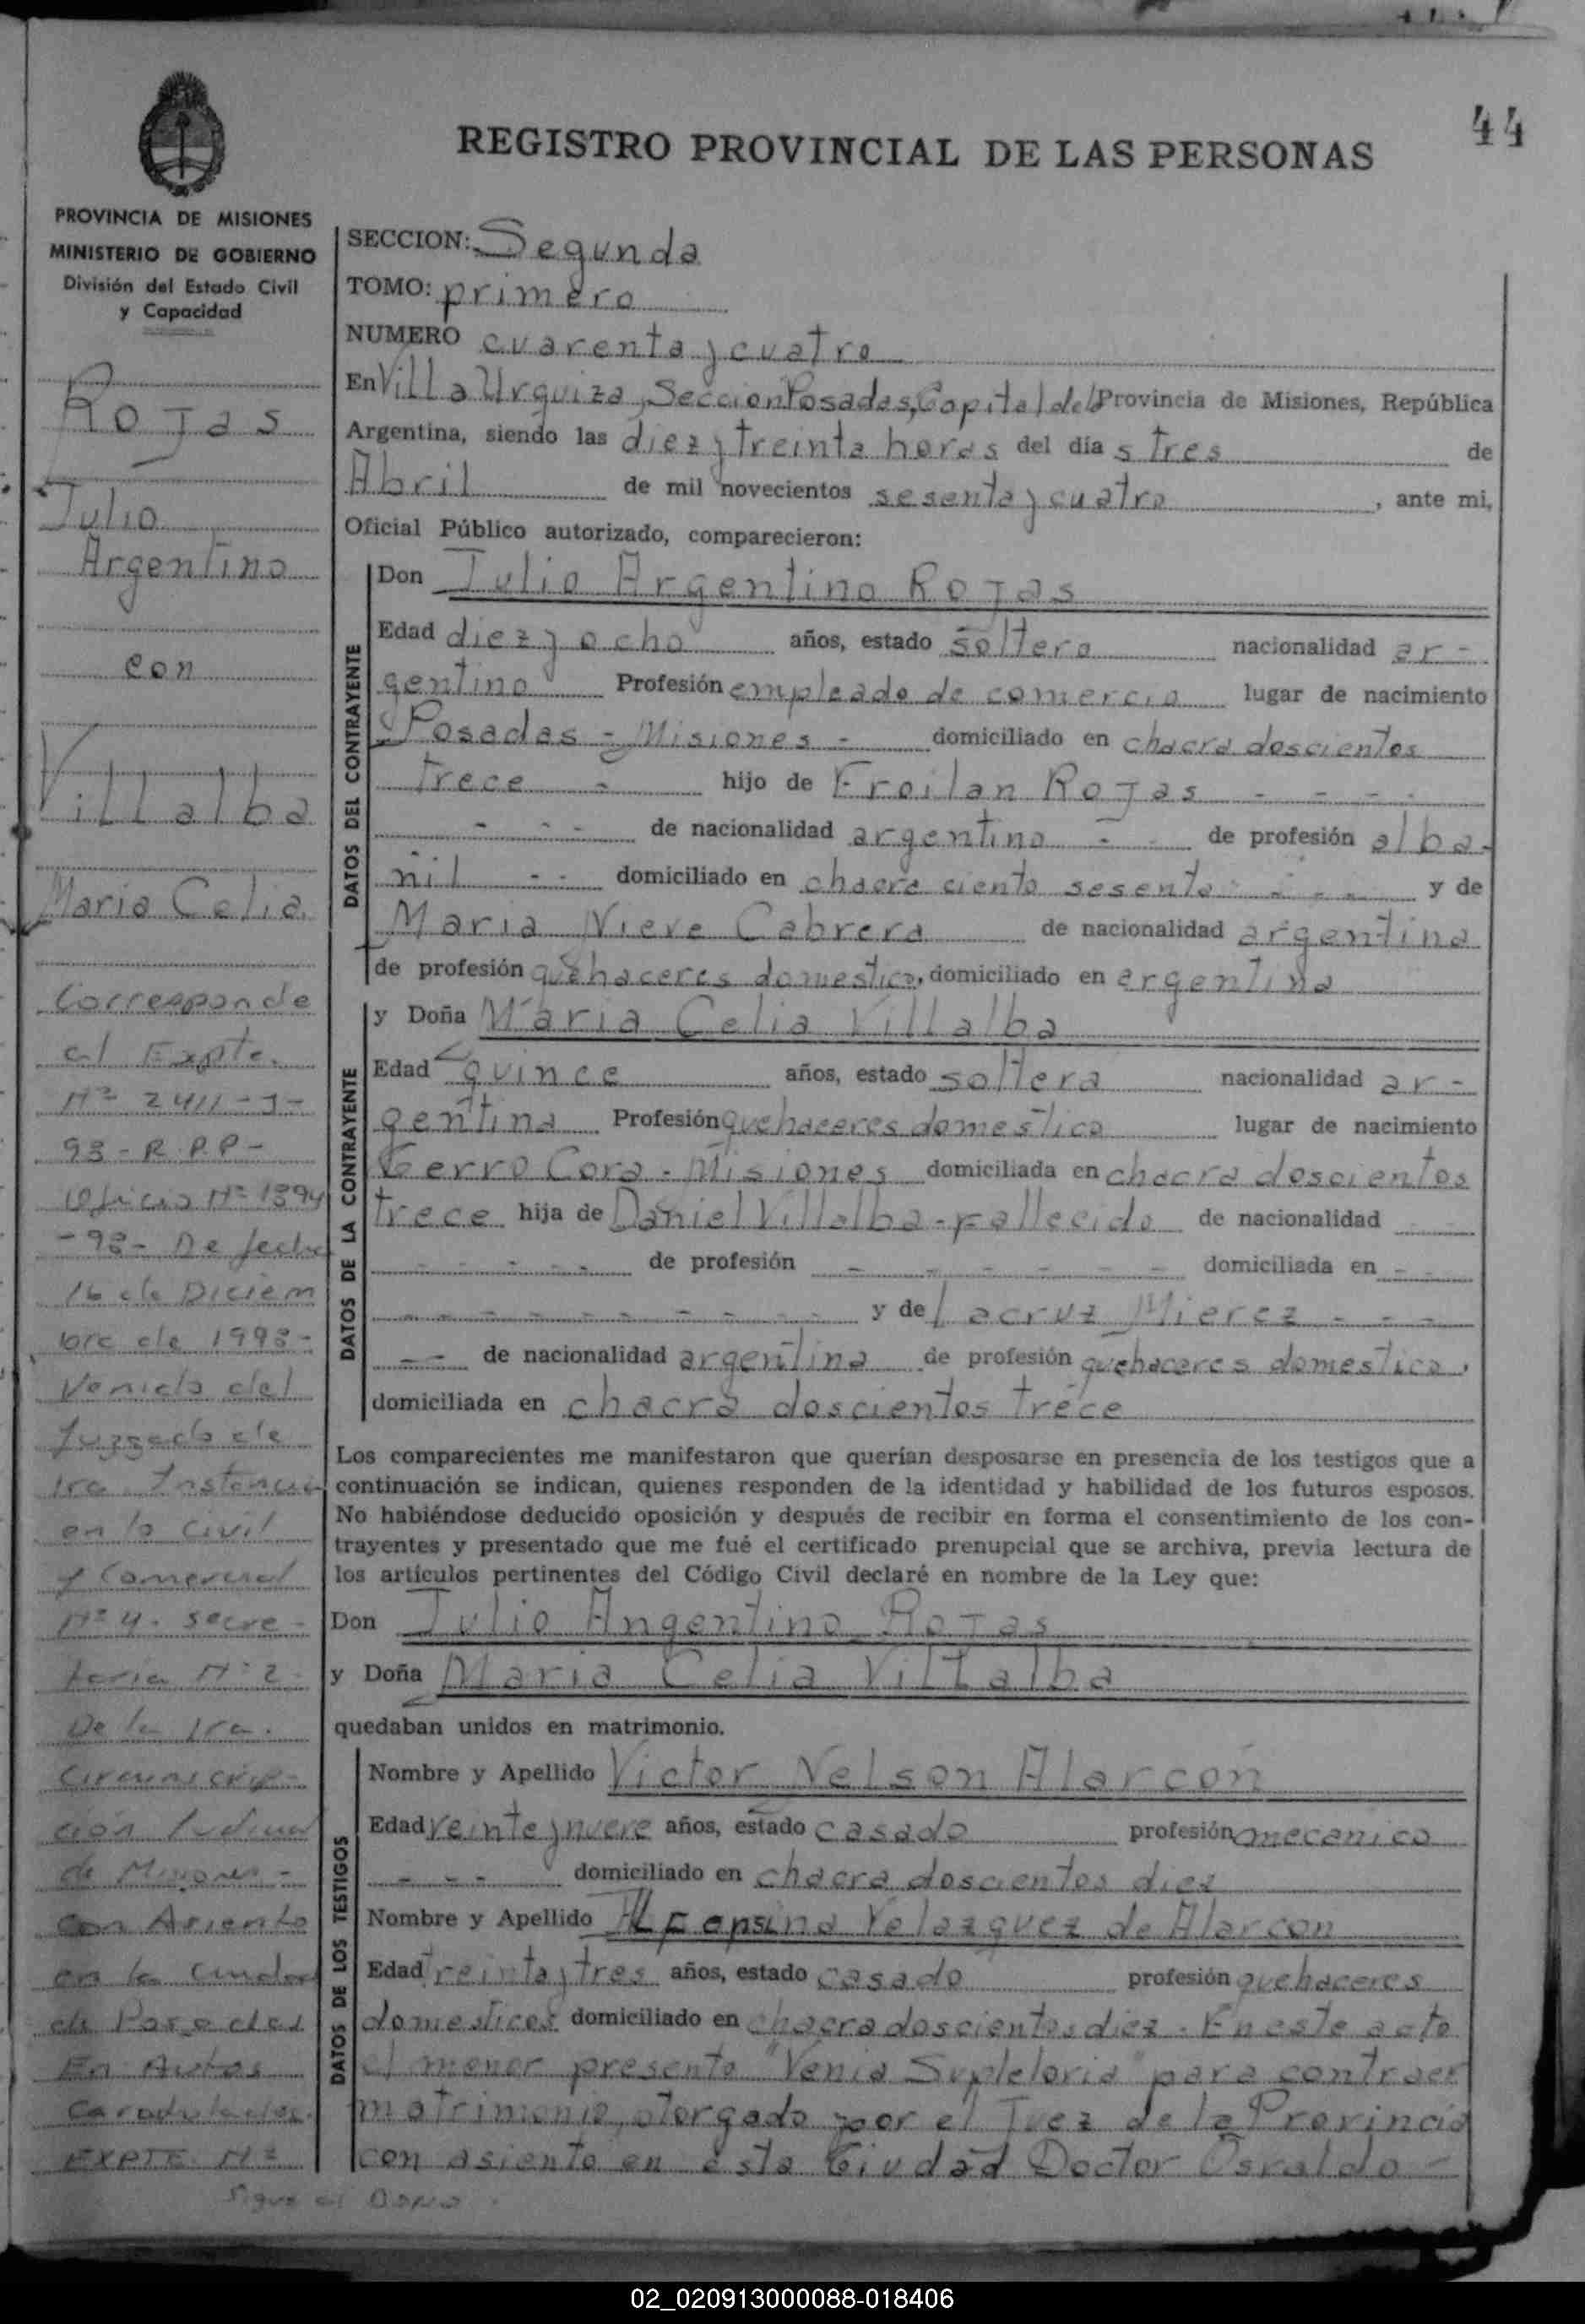 44
REGISTRO PROVINCIAL DE LAS PERSONAS
PROVINCIA DE MISIONES
MINISTERIO DE GOBIERNO
División del Estado Civil
y Capacidad
Rojas
Julio
Argentino
con
Villalba
Maria Celia
Corresponde
al Expte.
Nº 2411-J-
93-R.P.P-
Oficio Nº 1894
-98- De fecha
16 de Diciem
bre de 1998-
Venido del
Juzgado de
1ra. Instancia
en lo Civil
y Comercial
Nº 4. Secre-
taria Nº 2
De la 1ra.
Circunscrip-
ción Judicial
de Misiones-
con Asiento
en la Ciudad
de Posadas
En Autos
Caratulados.
EXPTE. Nº
Sigue al Dorso
SECCION: Segunda
TOMO: primero
NUMERO cuarenta y cuatro
En Villa Urquiza, Seccion Posadas, Capital de la Provincia de Misiones, República
Argentina, siendo las diez y treinta horas del día s tres de
Abril de mil novecientos sesenta y cuatro, ante mi,
Oficial Público autorizado, comparecieron:
DATOS DEL CONTRAYENTE
Don Julio Argentino Rojas
Edad diez y ocho años, estado soltero nacionalidad ar-
gentino Profesión empleado de comercio lugar de nacimiento
Posadas - Misiones - domiciliado en chacra doscientos
trece - hijo de Froilan Rojas - - - -
- - - de nacionalidad argentino - - de profesión alba-
ñil - - domiciliado en chacra ciento sesenta - - - y de
Maria Nieve Cabrera de nacionalidad argentina
de profesión quehaceres domestico, domiciliado en argentina
DATOS DE LA CONTRAYENTE
y Doña Maria Celia Villalba
Edad quince años, estado soltera nacionalidad ar-
gentina Profesión quehaceres domestico lugar de nacimiento
Cerro Cora - Misiones domiciliada en chacra doscientos
trece hija de Daniel Villalba - Fallecido de nacionalidad - -
- - - - - de profesión - - - - - - domiciliada en - -
- - - - - - - - - - y de Lacruz Mierez - - -
- - de nacionalidad argentina de profesión quehaceres domestico,
domiciliada en chacra doscientos trece
Los comparecientes me manifestaron que querían desposarse en presencia de los testigos que a
continuación se indican, quienes responden de la identidad y habilidad de los futuros esposos.
No habiéndose deducido oposición y después de recibir en forma el consentimiento de los con-
trayentes y presentado que me fué el certificado prenupcial que se archiva, previa lectura de
los artículos pertinentes del Código Civil declaré en nombre de la Ley que:
Don Julio Angentino Rojas
y Doña Maria Celia Villalba
quedaban unidos en matrimonio.
DATOS DE LOS TESTIGOS
Nombre y Apellido Victor Nelson Alarcón
Edad veinte y nueve años, estado casado profesión mecanico
- - - domiciliado en chacra doscientos diez
Nombre y Apellido Alfonsina Velazquez de Alarcon
Edad treinta y tres años, estado casado profesión quehaceres
domesticos domiciliado en chacra doscientos diez. En este acto
el menor presento "Venia Supletoria" para contraer
matrimonio, otorgado por el Juez de la Provincia
con asiento en esta Ciudad Doctor Osvaldo -
02_020913000088-018406